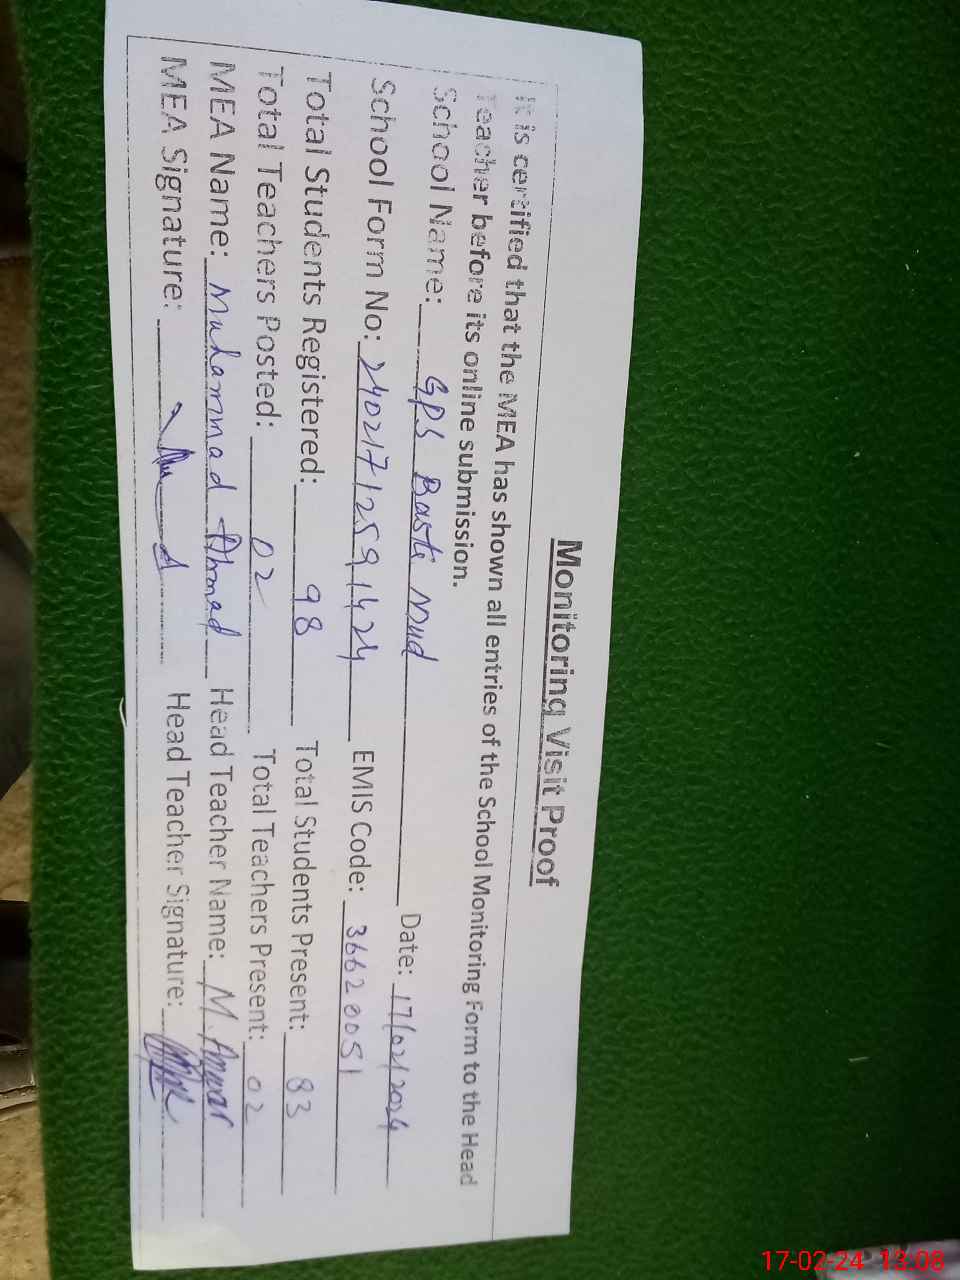 Monitoring Visit Proof
It is certified that the MEA has shown all entries of the School Monitoring Form to the Head
Teacher before its online submission.
School Name: GPS Basti Mud Date: 17/02/2024
School Form No: 24021712591424 EMIS Code: 36620051
Total Students Registered: 98 Total Students Present: 83
Total Teachers Posted: 02 Total Teachers Present: 02
MEA Name: Muhammad Ahmad Head Teacher Name: M. Anwar
MEA Signature: Head Teacher Signature:
17-02-24 13:08